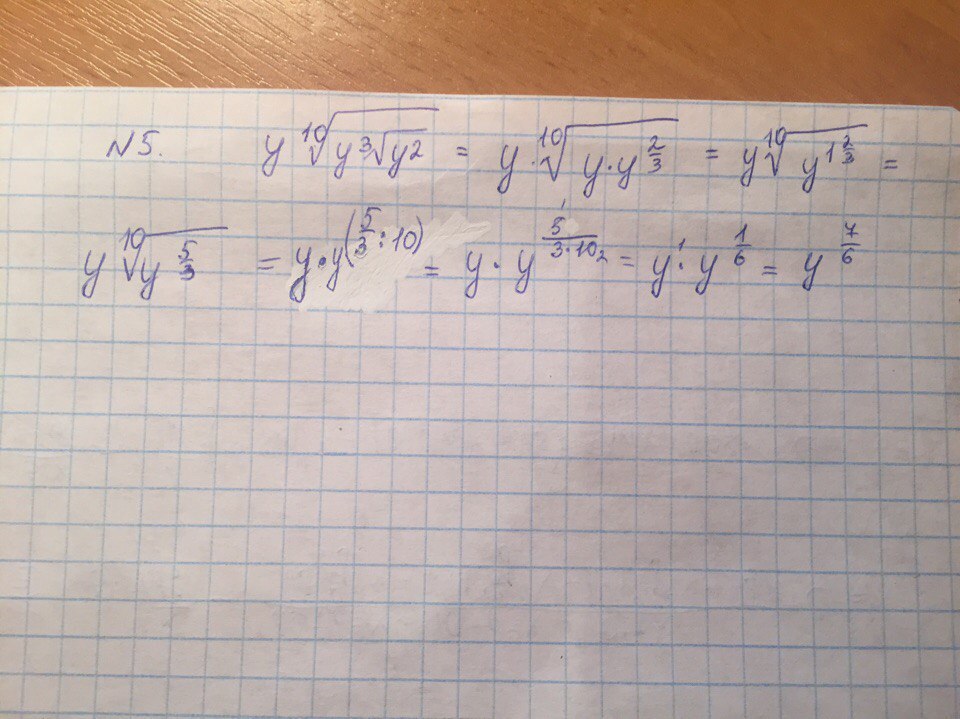 N5. y ¹⁰√(y ³√y²) = y · ¹⁰√(y · y^(2/3)) = y ¹⁰√(y^(1 2/3)) =
y ¹⁰√(y^(5/3)) = y · y^(5/3 : 10) = y · y^(5/(3·10)) 1 2 = y¹ · y^(1/6) = y^(7/6)